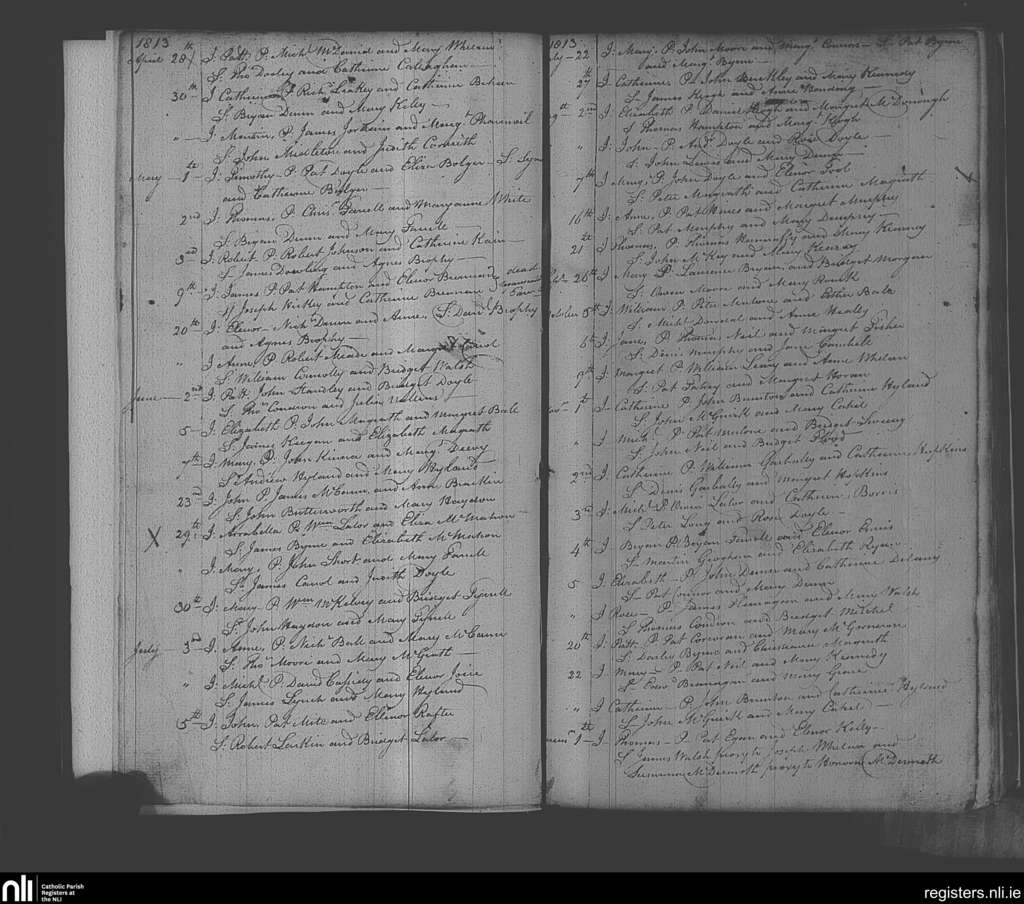 1813
April 28th I: Patt: P. Mich. McDaniel and Mary Whelan
S: Thos Dooley and Catherine Callaghan
30th I Catherine P. Rich. Leakey and Catherine
S: Bryan Dunn and Mary Kelly
" I: Martin, P. James and Margt
S: John Middleton and Judith
May 1st I: Timothy P. Pat Doyle and Eliza Bolger S:
and Catherine Bolger
2nd I: Thomas, P. Chris. Farrell and Maryanne White
S: Bryan Dunn and Mary Farrell
3rd I: Robert P. Robert Johnson and Catherine Kain
S: James Dowling and Agnes Brophy
9th I: James P. Pat Hampton and Elenor Brennan dead
S: Joseph Hickey and Catherine Brennan
20th I: Elenor Nich. Dunn and Anne, S: Danl Brophy
and Agnes Brophy
" I Anne, P. Robert Meade and Margt
S: William Connolly and Bridget Walsh
June 2nd I: Patt: John Handley and Bridget Doyle
S: Thos Condron and Julia
5 I: Elizabeth P. John Magrath and Margret Ball
S: James Keegan and Elizabeth Magrath
7th I: Mary, P. John and Margt Deevy
S: Andrew Hyland and Mary Hyland
23rd I: John P. James McCann and Ann
S: John Butterworth and Mary Haydon
29th I: Arrabella P. Wm Lalor and Eliza McMahon
S: James Byrne and Elizabeth McMahon
" I: Mary, P. John Short and Mary Farrell
S: James Carrol and Judith Doyle
30th I: Mary P. Wm McKelvey and Bridget Tyrrell
S: John Haydon and Mary Tyrrell
July 3rd I: Anne, P. Nich. Ball and Mary McCann
S: Thos Moore and Mary McGrath
" I: Michl P. David Cassidy and Elenor
S: James Lynch and Mary Hyland
5th I: John, Pat and Ellenor Rafter
S: Robert Larkin and Bridget Lalor
1813
22 I: Mary: P. John Moore and Margt Connor S: Pat Byrne
and Margt Byrne
27th I: Catherine, P. John and Mary Kennedy
S: James Keogh and Anne
2nd I: Elizabeth P. Daniel Keogh and Margret McDonough
S: Thomas Hampton and Margt Keogh
" I: John P. Andw Doyle and Rose Doyle
S: John Lewis and Mary Dunn
7th I: Mary, P. John Doyle and Elenor Tool
S: Peter Magrath and Catherine Magrath
16th I: Anne, P. Pat Hines and Margret Murphy
S: Pat Murphy and Mary Dempsey
21st I: Thomas, P. Thomas and Mary Kenney
S: John McKey and Mary
26th I: Mary P. Laurence Bryan, and Bridget Morgan
S: Owen Moore and Mary
5th I: William P. Peter Malone and Esther Bale
S: Michl and Anne Healey
6th I: Jane, P. Thomas Neil and Margret Fisher
S: Denis Murphy and Jane Campbell
9th I: Margret P. William Leary and Anne Whelan
S: Pat Fahey and Margret Horan
1st I: Catherine P. John Brunton and Catherine Hyland
S: John McGuirk and Mary Cahil
" I: Michl P. Pat Malone and Bridget Sweeny
S: John Neil and Bridget Floyd
2nd I: Catherine P. William and Catherine Hopkins
S: Denis and Margret Hopkins
3rd I: Mich. P. Owen Lalor and Catherine Borris
S: Peter Long and Rose Doyle
4th I: Bryan P. Bryan Farrell and Elenor
S: Martin Geoghan and Elizabeth Ryan
5 I: Elizabeth P. John Dunn and Catherine Delany
S: Pat Connor and Mary Dunn
" I: Rose P. James Flanagan and Mary Walsh
S: Thomas Condron and Bridget Mitchel
20th I: Patt: P. Pat Corcoran and Mary
S: Darby Byrne and Magrath
22 I: Mary P. Pat Neil and Mary Kennedy
S: Branagan and Mary Grace
" I: Catherine P. John Brunton and Catherine Hyland
S: John McGuirk and Mary Cahil
1st I: Thomas P. Pat Egan and Elenor Kelly
S: James Walsh proxy to Joseph Whelan and
Susanna McDermoth proxy to Honora McDermoth
nli Catholic Parish
Registers at
the NLI
registers.nli.ie